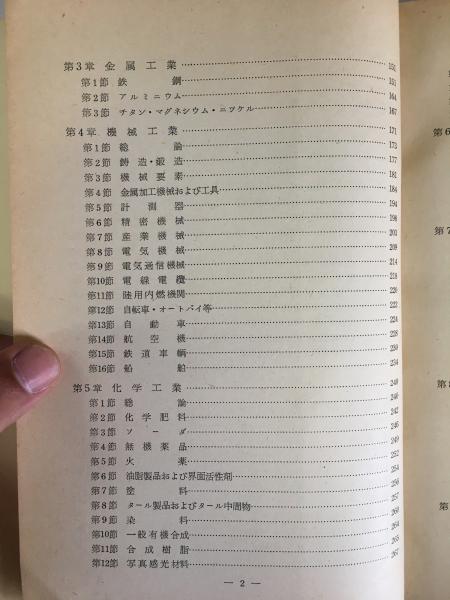 第3章 金属工業 151
第1節 鉄鋼 151
第2節 アルミニウム 164
第3節 チタン・マグネシウム・ニッケル 167
第4章 機械工業 171
第1節 総論 173
第2節 鋳造・鍛造 177
第3節 機械要素 181
第4節 金属加工機械および工具 184
第5節 計測器 194
第6節 精密機械 198
第7節 産業機械 201
第8節 電気機械 209
第9節 電気通信機械 214
第10節 電線電纜 218
第11節 陸用内燃機関 220
第12節 自転車・オートバイ等 222
第13節 自動車 224
第14節 航空機 228
第15節 鉄道車輛 230
第16節 船舶 234
第5章 化学工業 240
第1節 総論 240
第2節 化学肥料 242
第3節 ソーダ 246
第4節 無機薬品 249
第5節 火薬 252
第6節 油脂製品および界面活性剤 254
第7節 塗料 255
第8節 タール製品およびタール中間物 257
第9節 染料 260
第10節 一般有機合成 264
第11節 合成樹脂 265
第12節 写真感光材料 267
— 2 —
第6
第7
第8
第